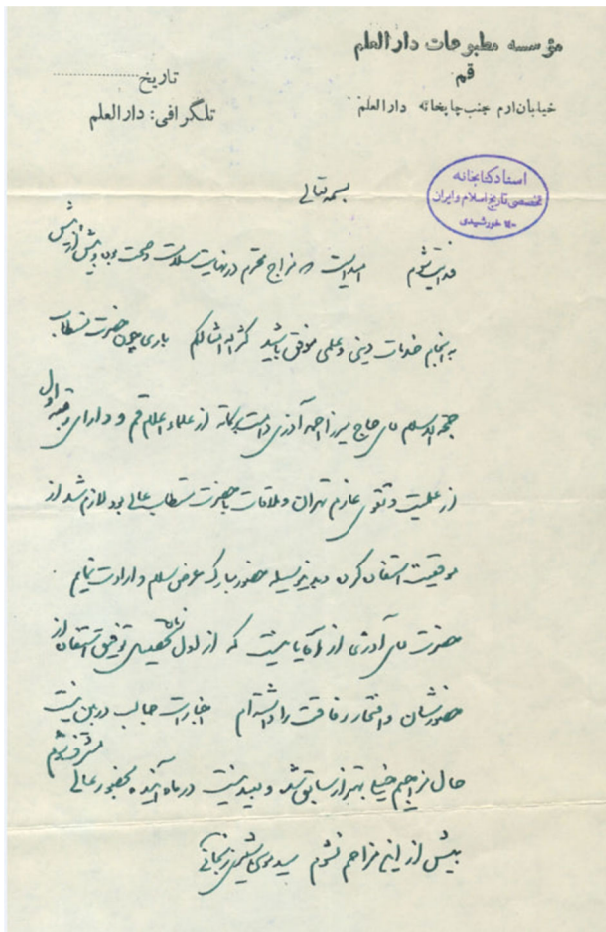 مؤسسه مطبوعات دارالعلم
قم
خیابان ارم جنب چاپخانه دارالعلم
تاریخ ....................
تلگرافی: دارالعلم
اسناد کتابخانه
تخصصی تاریخ اسلام و ایران
خورشیدی
بسمه تعالی
فدایت شوم امید است مزاج محترم در نهایت سلامت و صحت بوده و بیش از پیش
به انجام خدمات دینی و علمی موفق باشید کثر الله امثالکم باری چون حضرت مستطاب
حجة الاسلام آقای حاج میرزا احمد آذری دامت برکاته از علماء اعلام قم و دارای رتبه اول
از علمیت و تقوی عازم تهران و ملاقات با حضرت مستطاب عالی بود لازم شد از
موقعیت استفاده کرده و بدینوسیله حضور مبارک عرض سلام و ارادت نمایم
حضرت آقای آذری از آقایانیست که از اول تحصیل توفیق استفاده از
حضورشان و افتخار رفاقت را داشته‌ام اخبارات جالب در بین نیست
حال مزاجیم خیلی بهتر از سابق شد و بعید نیست در ماه آینده بحضور عالی مشرف شوم
بیش از این مزاحم نشوم سید موسی شبیری زنجانی